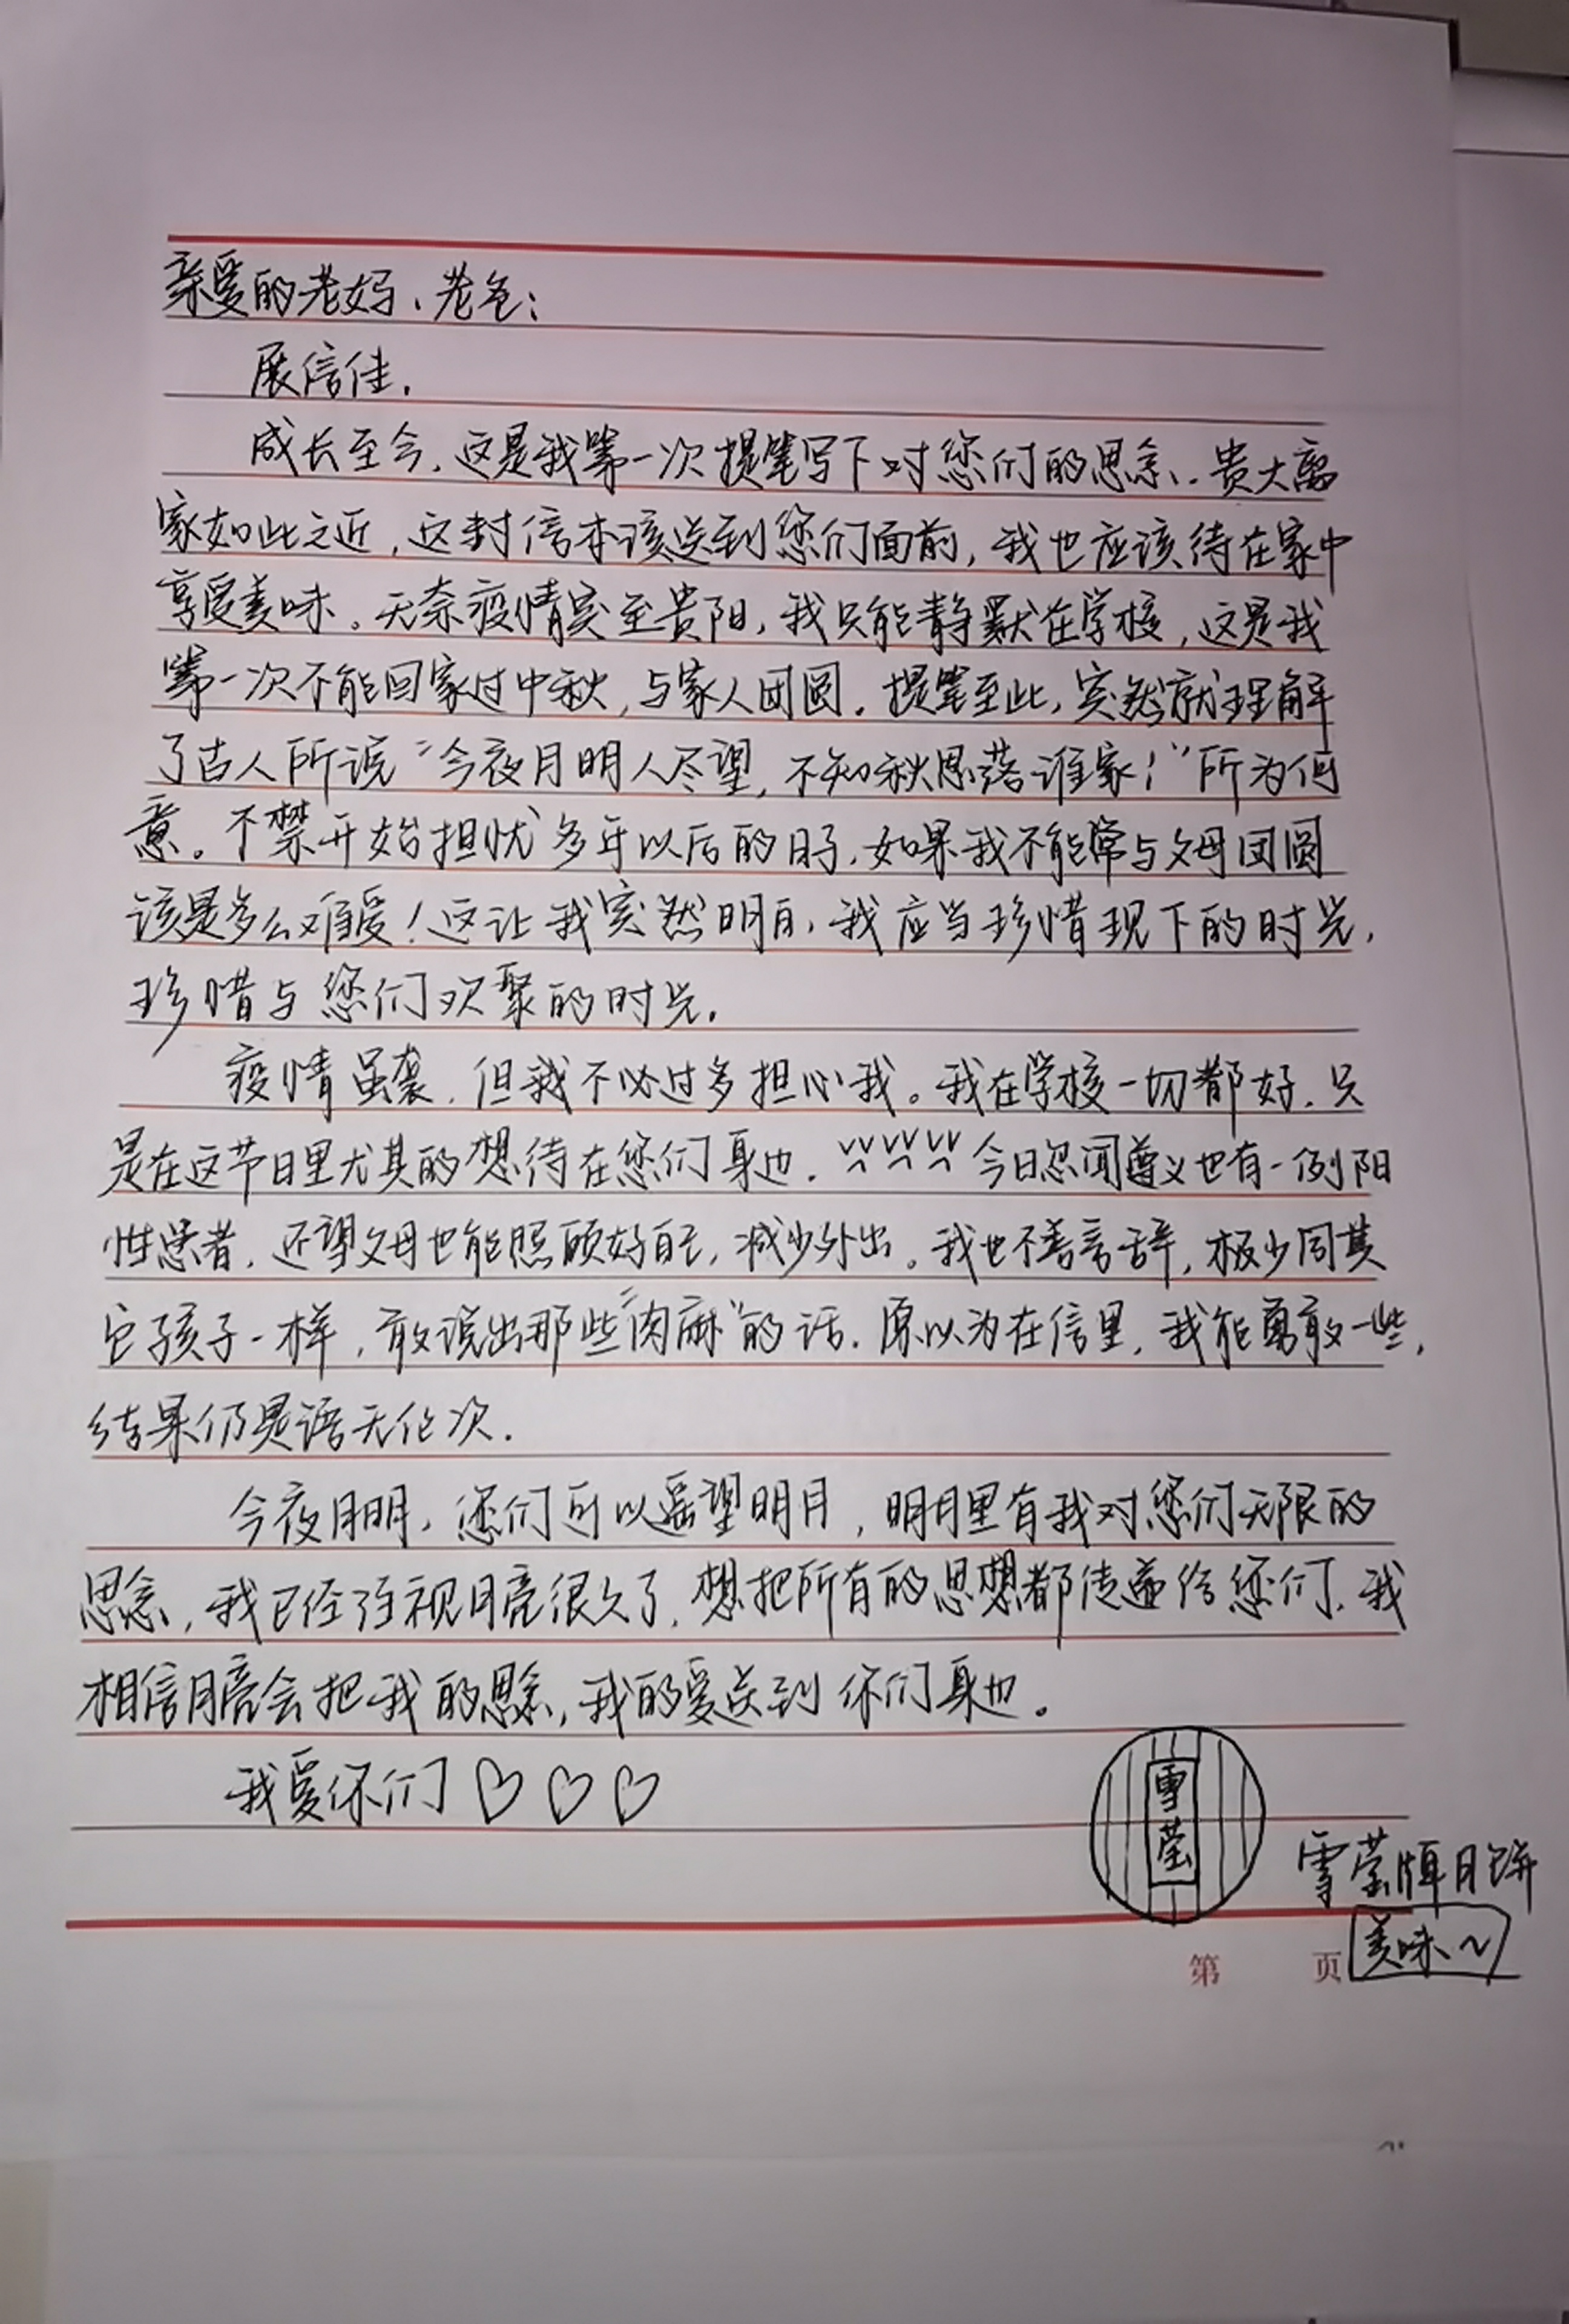 亲爱的老妈、老爸：
展信佳.
成长至今,这是我第一次提笔写下对您们的思念.贵大离
家如此之近,这封信本该送到您们面前,我也应该待在家中
享受美味。无奈疫情突至贵阳,我只能静默在学校,这是我
第一次不能回家过中秋,与家人团圆.提笔至此,突然就理解
了古人所说“今夜月明人尽望,不知秋思落谁家！”所为何
意。不禁开始担忧多年以后的日子,如果我不能常与父母团圆
该是多么难受！这让我突然明白,我应当珍惜现下的时光,
珍惜与您们欢聚的时光.
疫情虽袭,但我不必过多担心我。我在学校一切都好.只
是在这节日里尤其的想待在您们身边.今日忽闻遵义也有一例阳
性患者,还望父母也能照顾好自己,减少外出。我也不善言辞,极少同其
它孩子一样,敢说出那些“肉麻”的话.原以为在信里,我能勇敢一些,
结果仍是语无伦次.
今夜月明,您们可以遥望明月,明月里有我对您们无限的
思念,我已经注视月亮很久了,想把所有的思想都传递给您们.我
相信月亮会把我的思念,我的爱送到你们身边。
我爱你们♡♡♡
雪莹
雪莹牌月饼
美味~
第 页